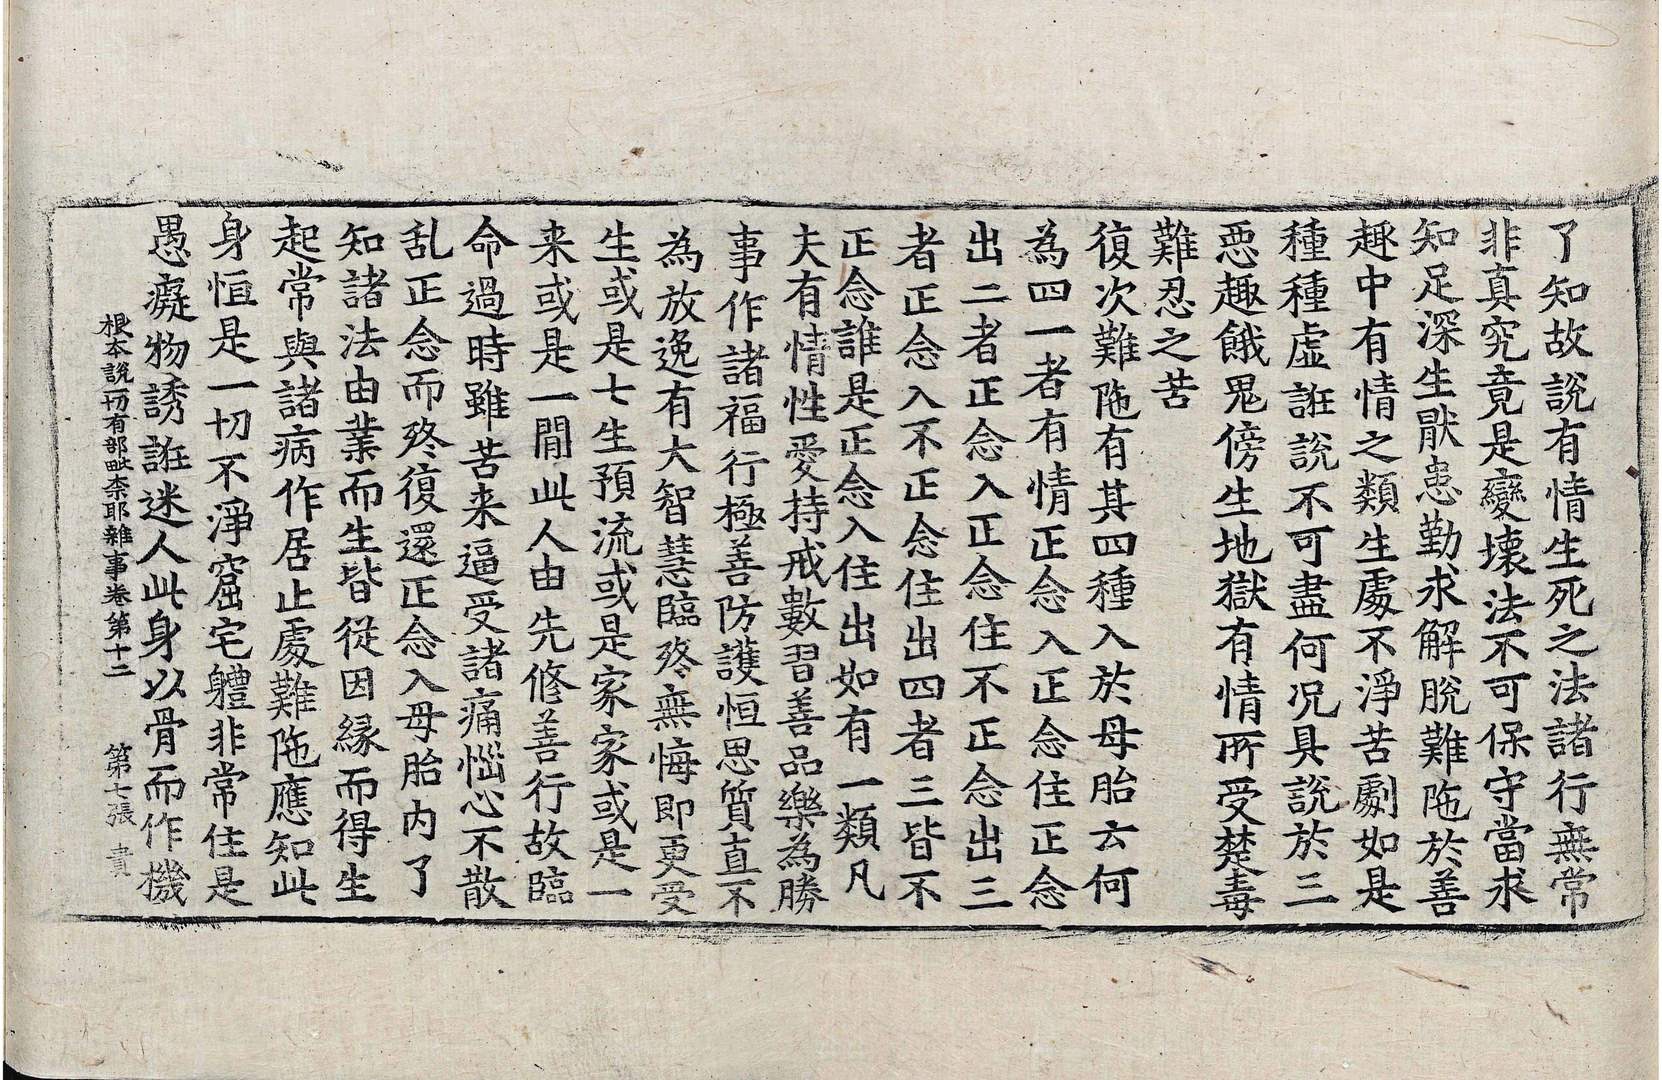 了知故說有情生死之法諸行無常
非真究竟是變壞法不可保守當求
知足深生猒患勤求解脫難陁於善
趣中有情之類生處不淨苦劇如是
種種虛誑說不可盡何况具說於三
惡趣餓鬼傍生地獄有情所受楚毒
難忍之苦
復次難陁有其四種入於母胎云何
為四一者有情正念入正念住正念
出二者正念入正念住不正念出三
者正念入不正念住出四者三皆不
正念誰是正念入住出如有一類凡
夫有情性愛持戒數習善品樂為勝
事作諸福行極善防護恒思質直不
為放逸有大智慧臨終無悔即更受
生或是七生預流或是家家或是一
来或是一閒此人由先修善行故臨
命過時雖苦来逼受諸痛惱心不散
乱正念而終復還正念入母胎内了
知諸法由業而生皆從因緣而得生
起常與諸病作居止處難陁應知此
身恒是一切不淨窟宅體非常住是
愚癡物誘誑迷人此身以骨而作機
根本說一切有部毗奈耶雜事卷第十二 第七張 貴